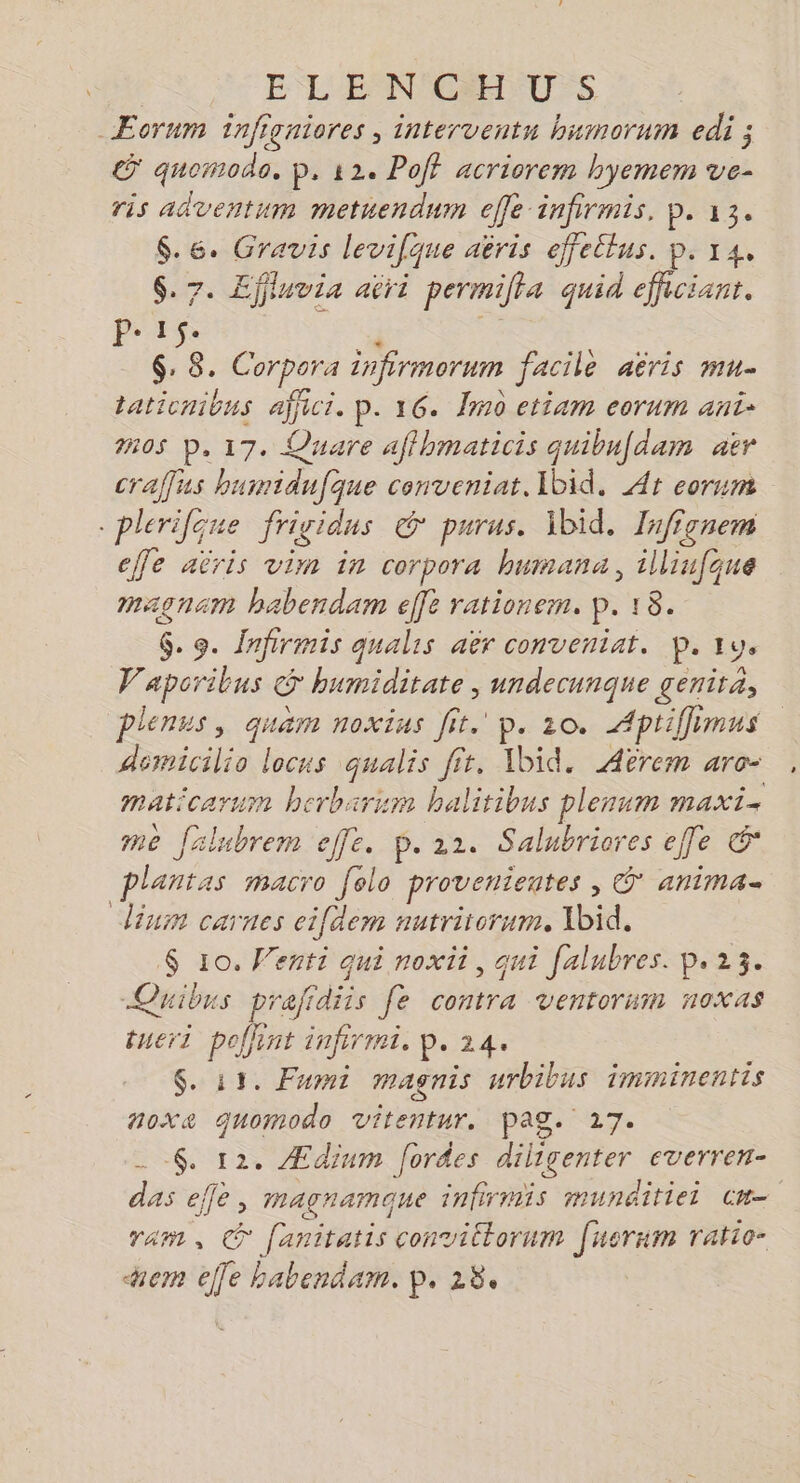 ELENCHUS
Eorum inſigniores, interventu humorum edi;
& quomodo. p. 12. Poſt acriorem hyemem ve-
ris adventum metuendum eſſe infirmis. p. 13.
§. 6. Gravis leviſque aëris effectus. p. 14.
§. 7. Effluvia aëri permiſta quid efficiant.
p. 15.
§. 8. Corpora infirmorum facilè aëris mu-
tationibus affici. p. 16. Imò etiam eorum ani-
mos p. 17. Quare aſthmaticis quibuſdam aër
craſſus humiduſque conveniat. Ibid. At eorum
pleriſque frigidus & purus. ibid. Inſignem
eſſe aëris vim in corpora humana, illiuſque
magnam habendam eſſe rationem. p. 18.
§. 9. Infirmis qualis aër conveniat. p. 19.
Vaporibus & humiditate, undecunque genitâ,
plenus, quàm noxius ſit. p. 20. Aptiſſimus
domicilio locus qualis ſit. Ibid. Aërem aro-
maticarum herbarum halitibus plenum maxi-
mè ſalubrem eſſe. p. 22. Salubriores eſſe &
plantas macro ſolo provenientes, & anima-
lium carnes eiſdem nutritorum. Ibid.
§ 10. Venti qui noxii, qui ſalubres. p. 23.
Quibus præſidiis ſe contra ventorum noxas
tueri poſſint infirmi. p. 24.
§. 11. Fumi magnis urbibus imminentis
noxæ quomodo vitentur. pag. 27.
§. 12. Ædium ſordes diligenter everren-
das eſſe, magnamque infirmis munditiei cu-
ram, & ſanitatis convictorum ſuorum ratio-
nem eſſe habendam. p. 28.